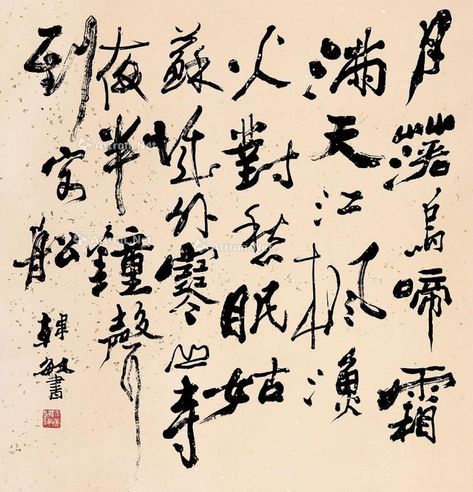 月落烏啼霜
滿天江楓漁
火對愁眠姑
蘇城外寒山寺
夜半鍾聲
到客船
韓敏書